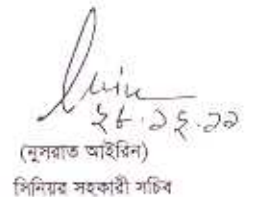 ২৮.১২.২২
(নুসরাত আইরিন)
সিনিয়র সহকারী সচিব